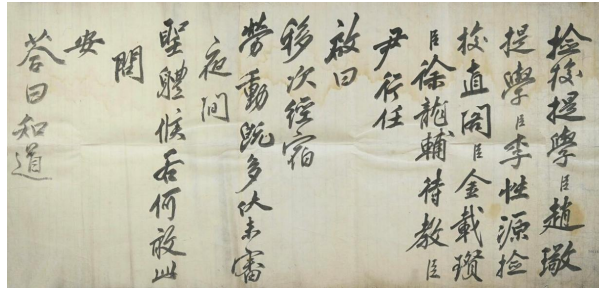 檢校提學臣趙璥
提學臣李性源檢
校直閣臣金載瓚
臣徐龍輔待教臣
尹行任
啟曰
移次經宿
勞動既多伏未審
夜間
聖體候若何敢此
問
安
答曰知道